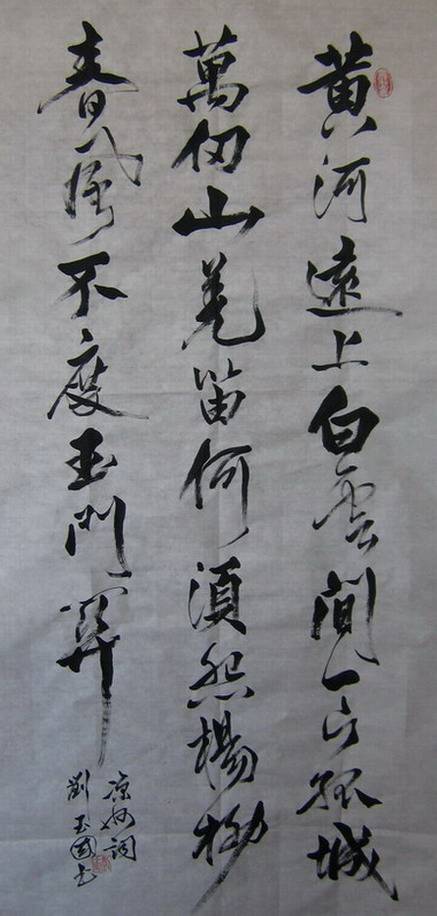 黄河遠上白雲間一片孤城
萬仞山羌笛何須怨楊柳
春風不度玉門關
凉州詞
劉玉國书